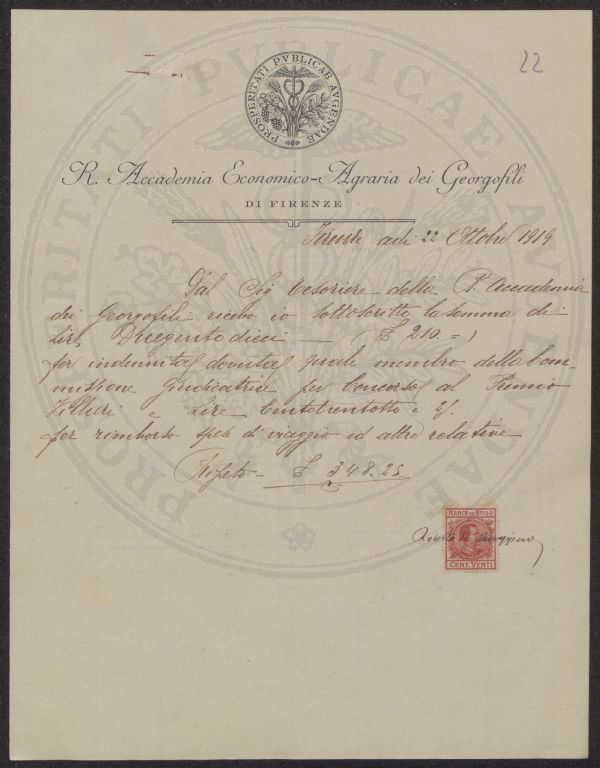 22
PROSPERITATI PVBLICAE AVGENDAE
R. Accademia Economico-Agraria dei Georgofili
DI FIRENZE
Firenze adi 22 Ottobre 1919
Dal Sig Tesoriere della R. Accademia
dei Georgofili ricevo io sottoscritto la somma di
lire Duegentodieci — (£ 210.=)
per indennità dovuta quale membro della Com-
missione Giudicatrice pel Concorso al Premio
e Lire Centotrentotto e 25.
per rimborso spese di viaggio ed altre relative
Ripeto - £ 348.25
MARCA DA BOLLO
Ruggiero
CENT. VENTI
PROSPERITATI PVBLICAE AVGENDAE